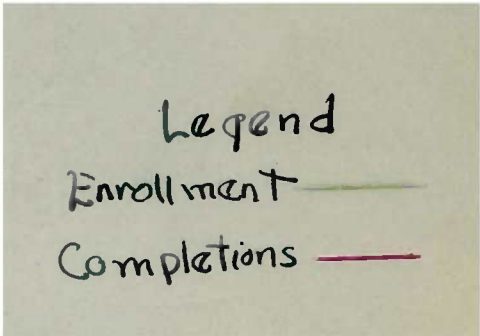 Legend
Enrollment
Completions